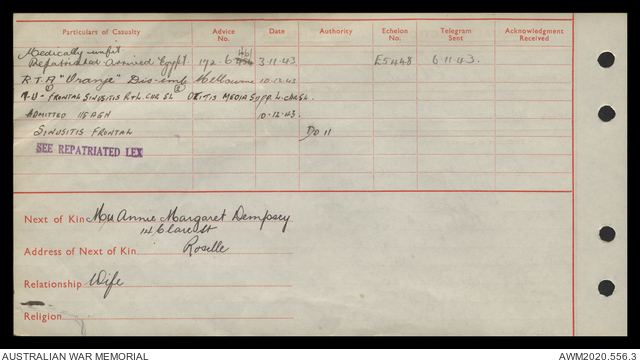 Particulars of Casualty Advice No. Date Authority Echelon No. Telegram Sent Acknowledgment Received
Medically unfit
Repatriated arrived Egypt 172-6 3.11.43 E5448 6.11.43.
R.T.A "Oranje" Dis-emb Melbourne 10.12.43
FRONTAL SINUSITIS R+L. CHR SL OTITIS MEDIA SUPP L. CHR SL.
ADMITTED 115 AGH 10.12.43.
SINUSITIS FRONTAL Do 11
SEE REPATRIATED LEX
Next of Kin Mrs Annie Margaret Dempsey
14 Clare St
Address of Next of Kin Roselle
Relationship Wife
Religion
AUSTRALIAN WAR MEMORIAL AWM2020.556.3